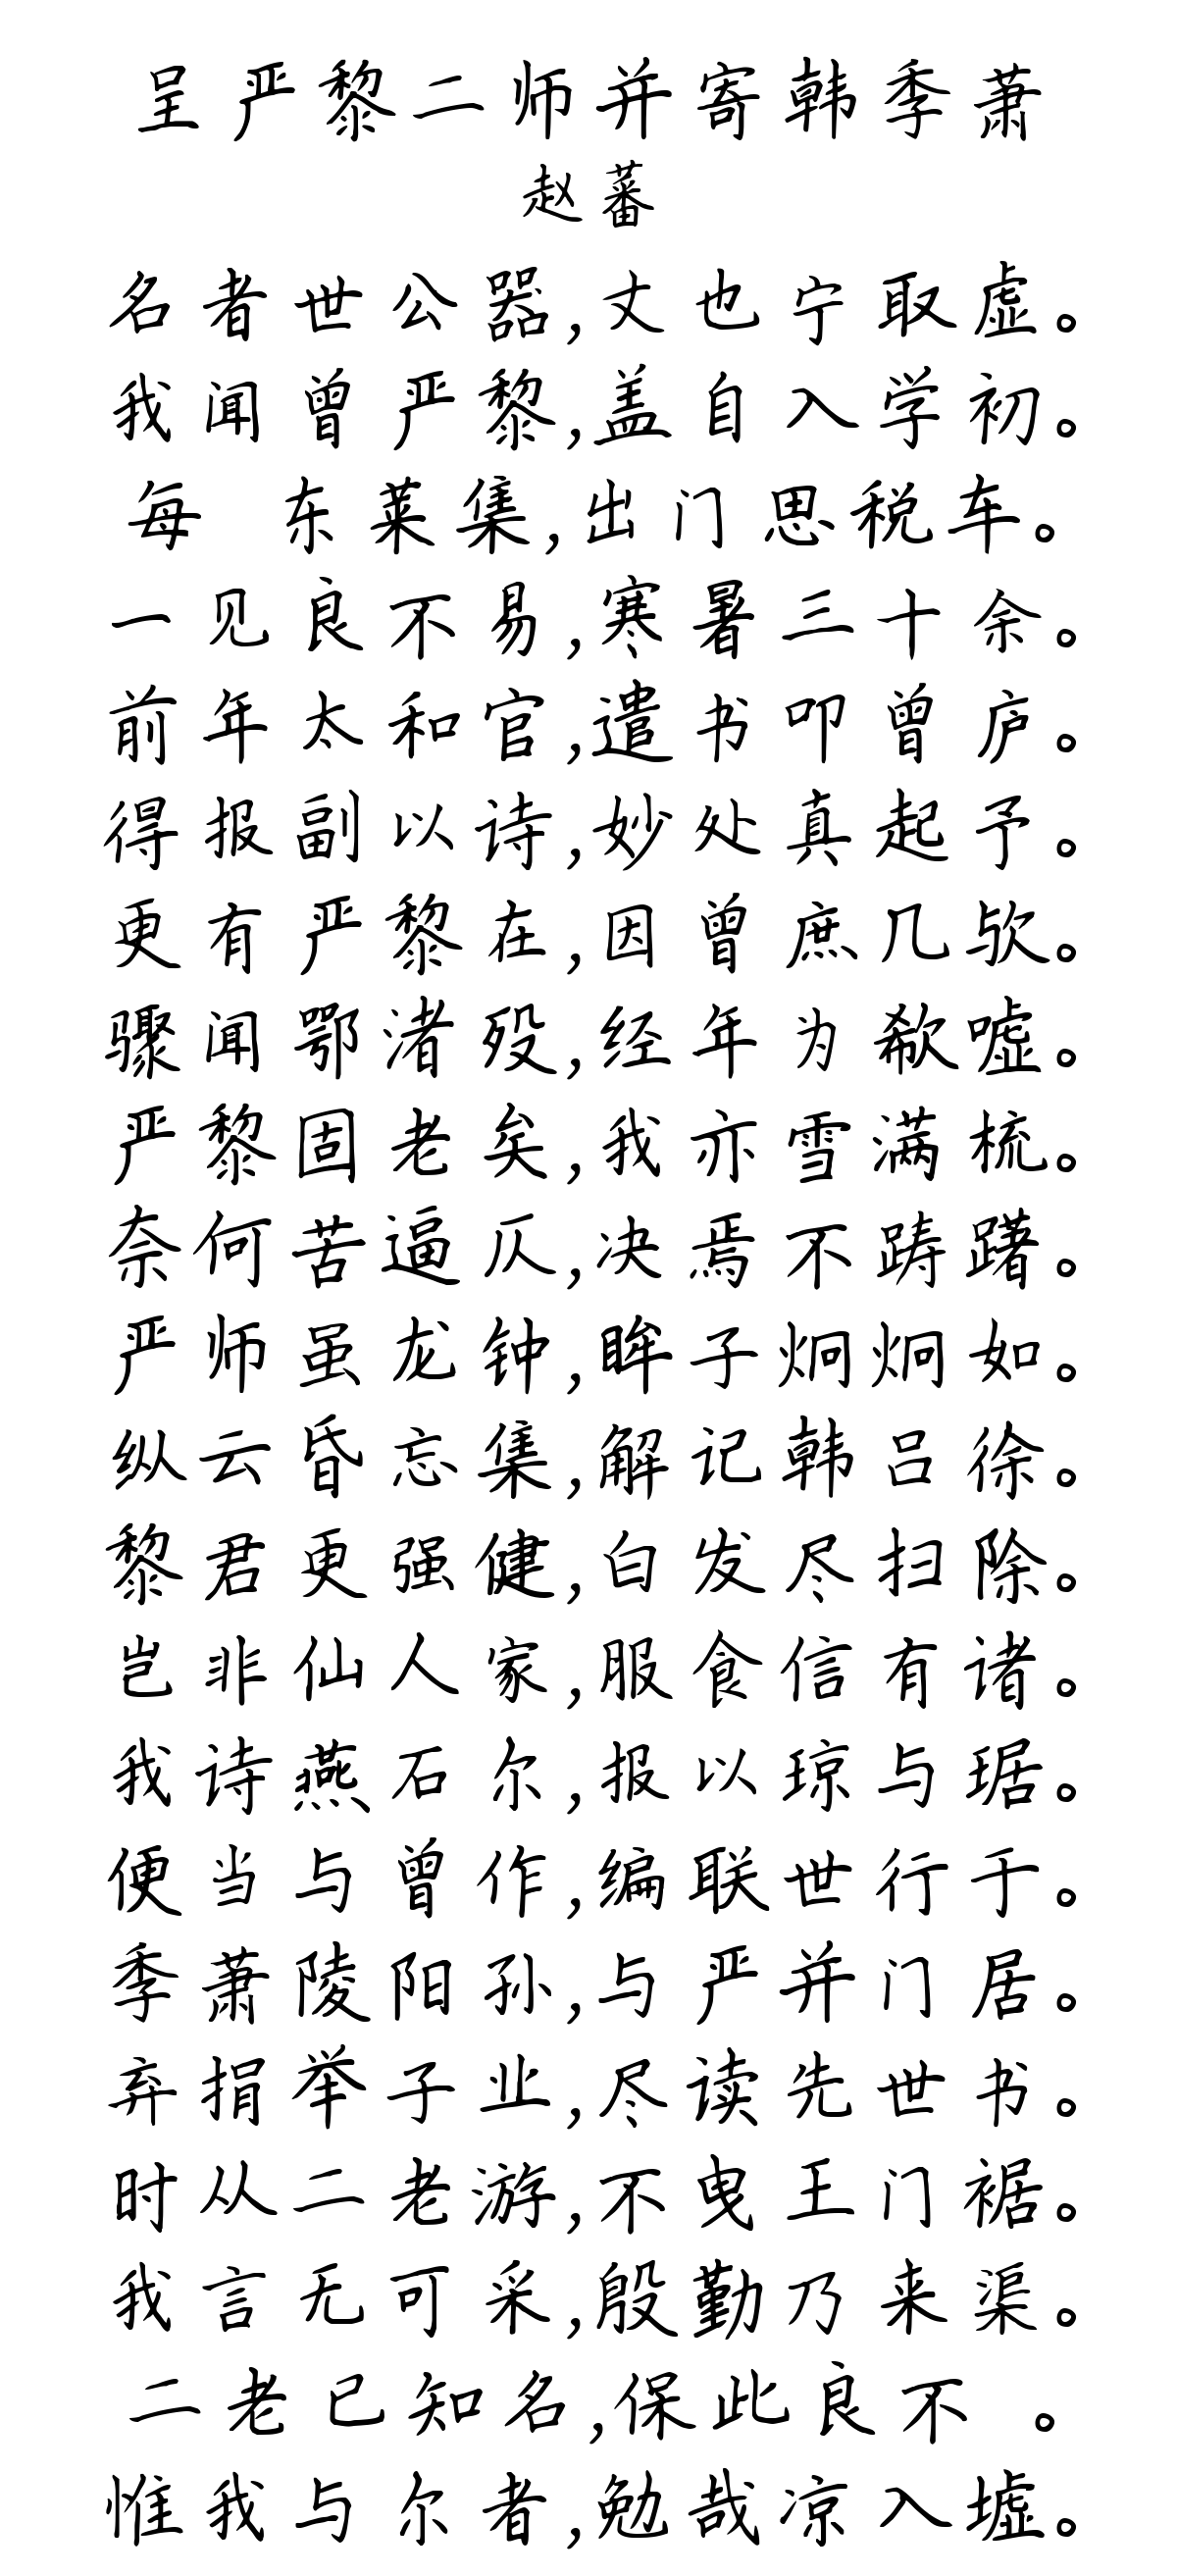 呈严黎二师并寄韩季萧
赵蕃
名者世公器,丈也宁取虚。
我闻曾严黎,盖自入学初。
每 东莱集,出门思税车。
一见良不易,寒暑三十余。
前年太和官,遣书叩曾庐。
得报副以诗,妙处真起予。
更有严黎在,因曾庶几欤。
骤闻鄂渚殁,经年为欷嘘。
严黎固老矣,我亦雪满梳。
奈何苦逼仄,决焉不踌躇。
严师虽龙钟,眸子炯炯如。
纵云昏忘集,解记韩吕徐。
黎君更强健,白发尽扫除。
岂非仙人家,服食信有诸。
我诗燕石尔,报以琼与琚。
便当与曾作,编联世行于。
季萧陵阳孙,与严并门居。
弃捐举子业,尽读先世书。
时从二老游,不曳王门裾。
我言无可采,殷勤乃来渠。
二老已知名,保此良不 。
惟我与尔者,勉哉凉入墟。